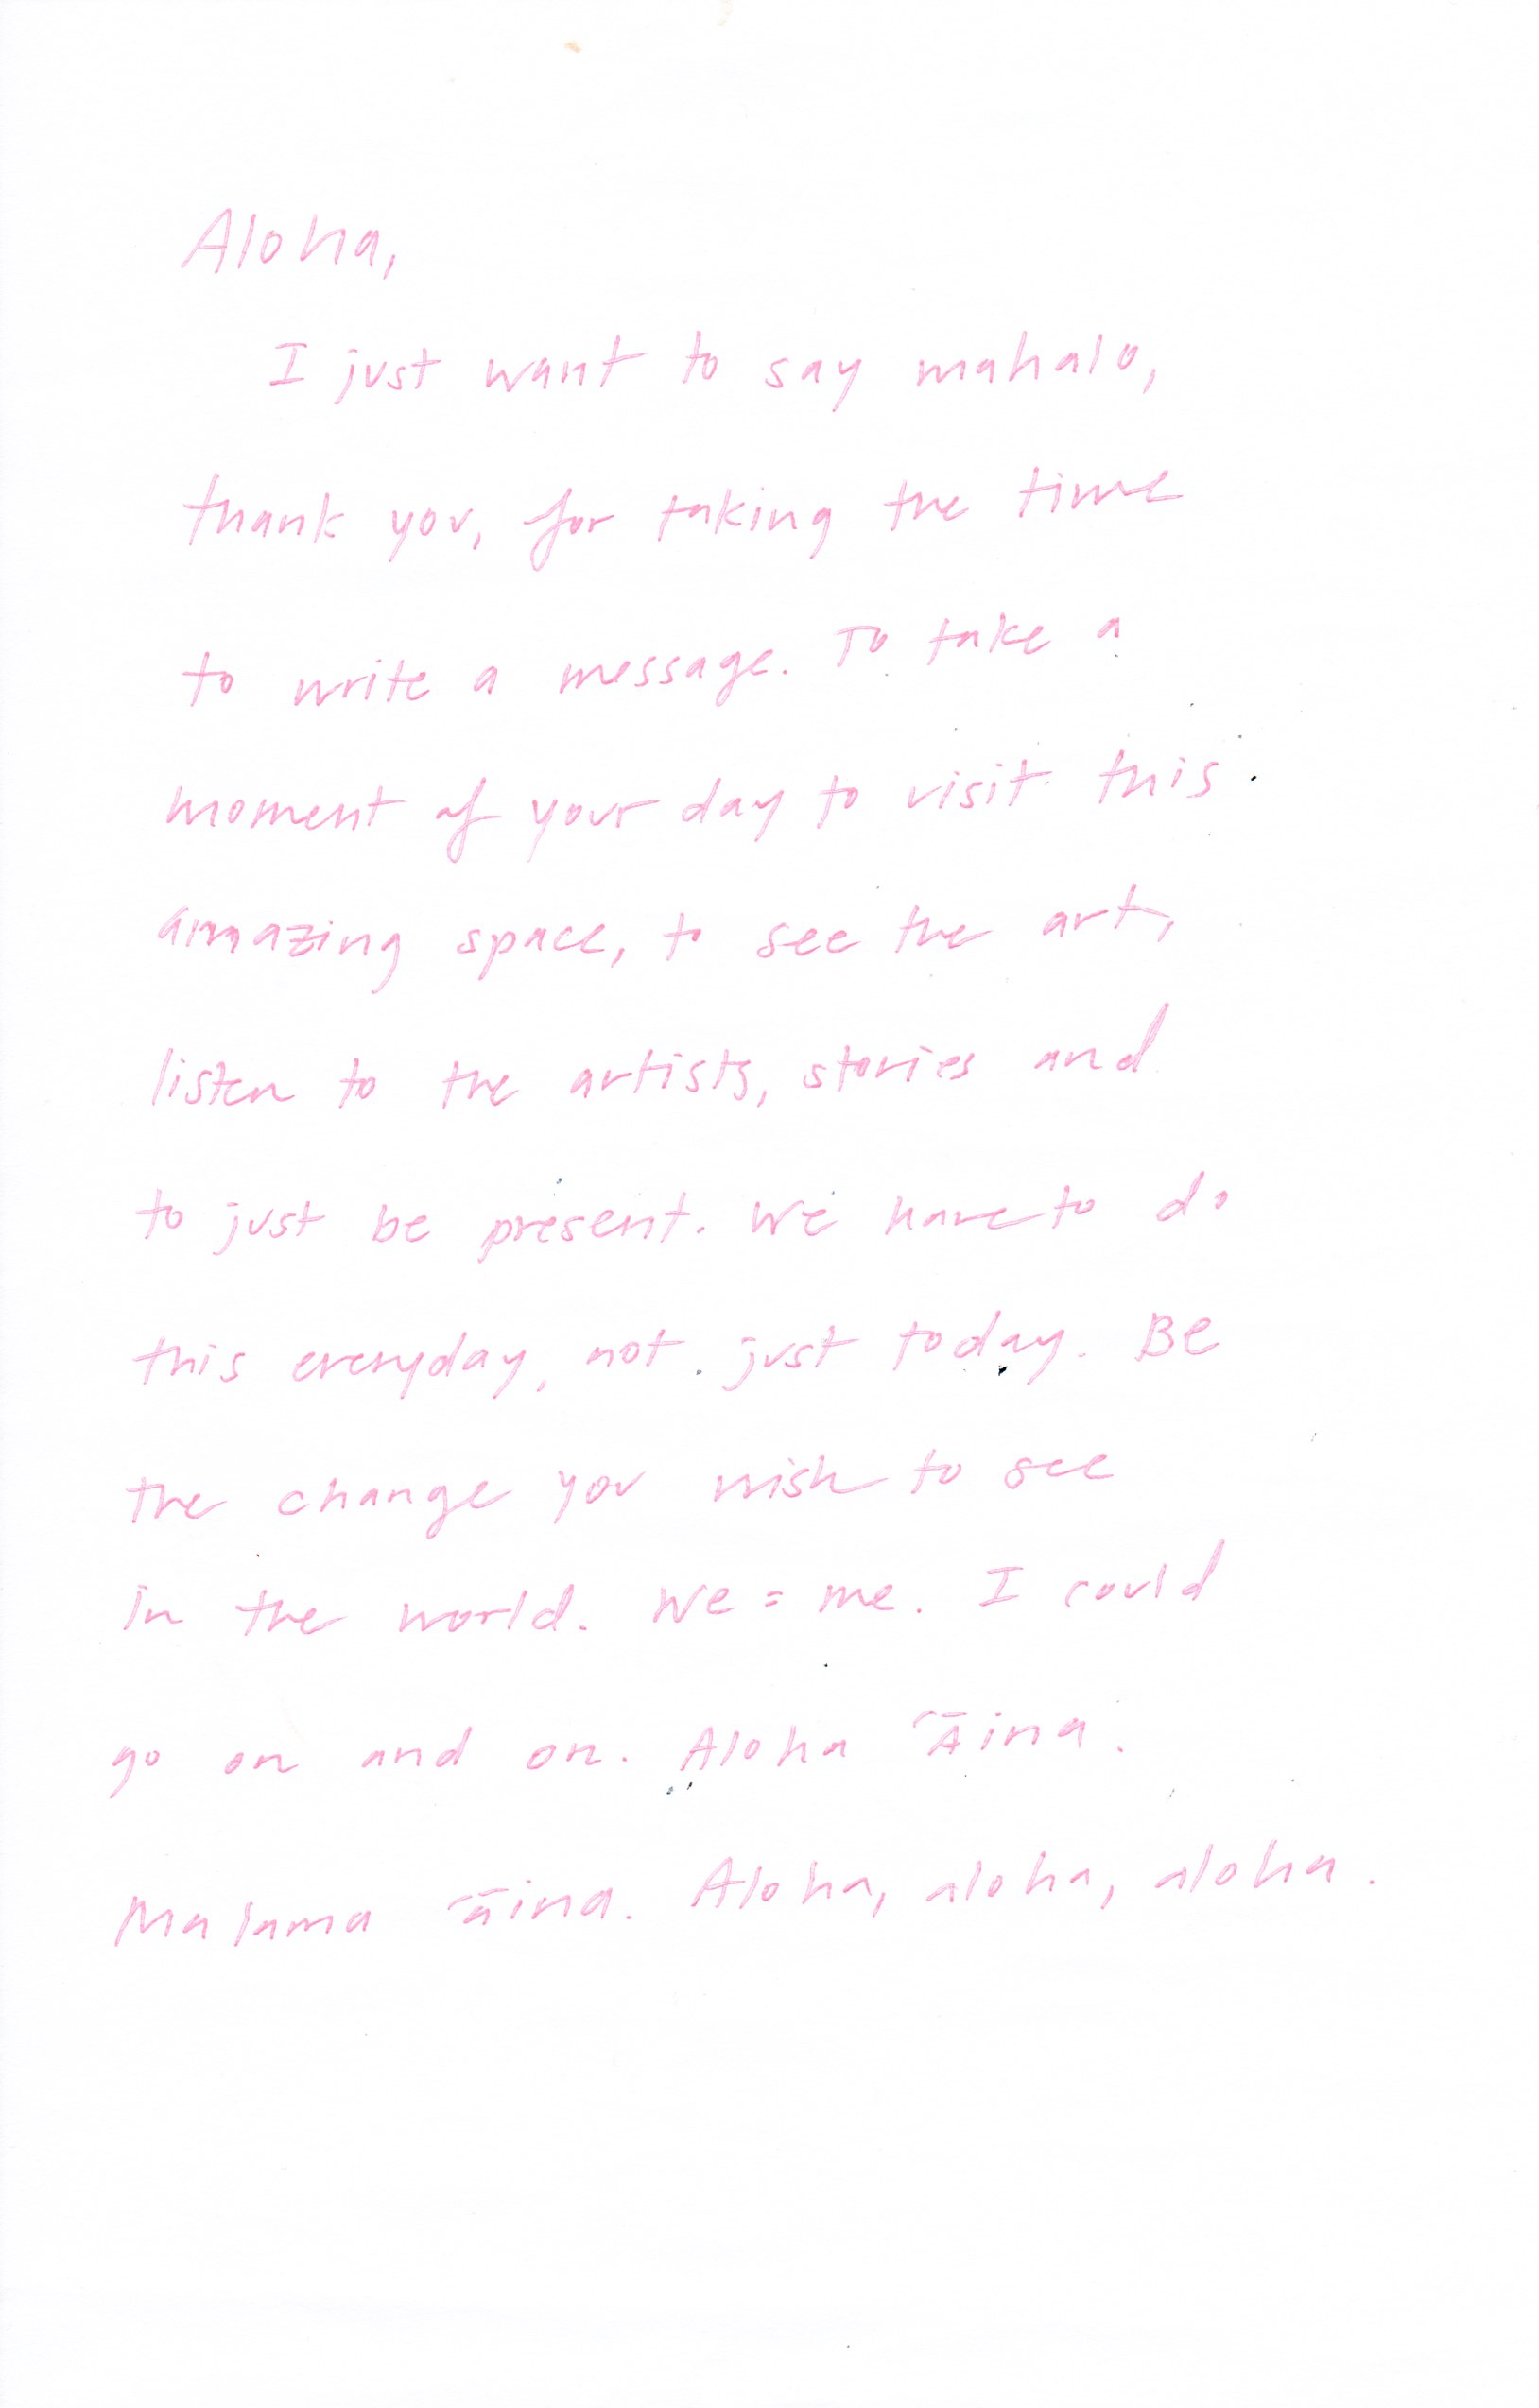 Aloha,
I just want to say mahalo,
thank you, for taking the time
to write a message. To take a
moment of your day to visit this
amazing space, to see the art,
listen to the artists, stories and
to just be present. We have to do
this everyday, not just today. Be
the change you wish to see
in the world. We = me. I could
go on and on. Aloha ʻĀina.
Malama ʻāina. Aloha, aloha, aloha.